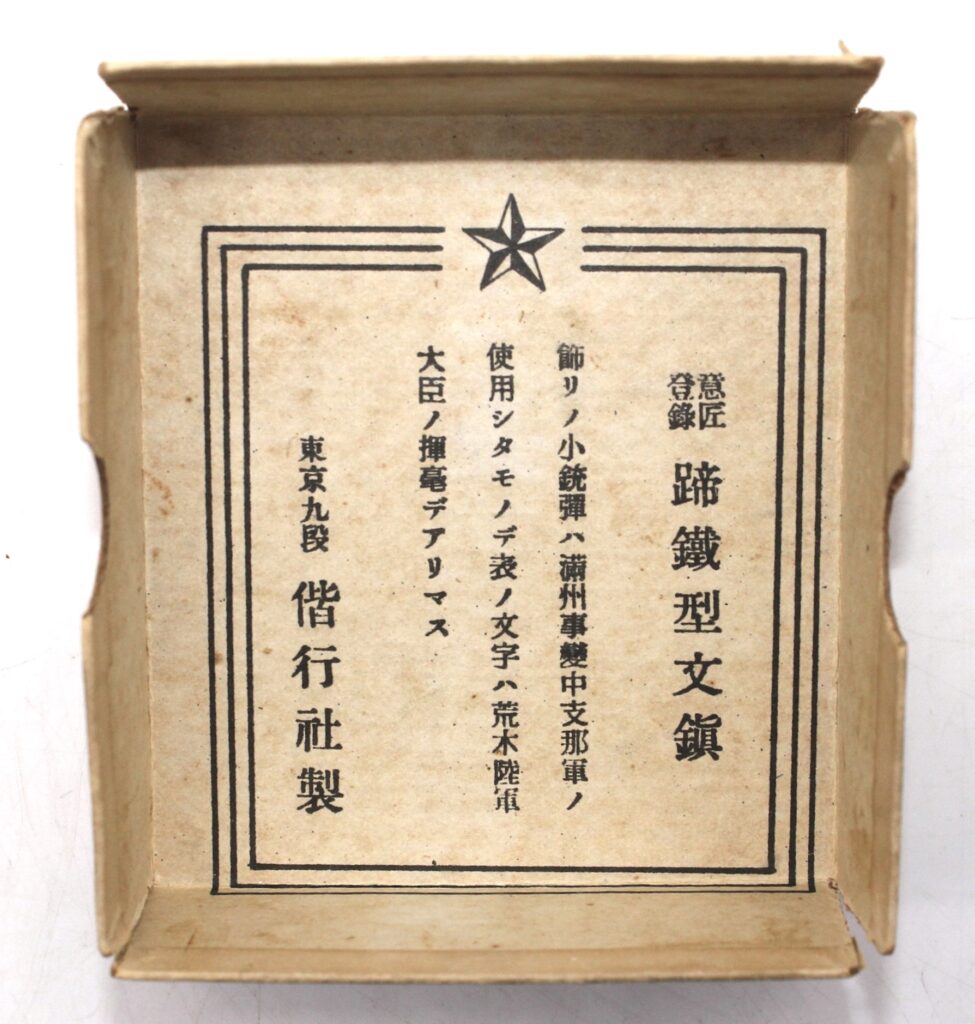 意匠登錄 蹄鐵型文鎭
飾リノ小銃彈ハ滿州事變中支那軍ノ
使用シタモノデ表ノ文字ハ荒木陸軍
大臣ノ揮毫デアリマス
東京九段 偕行社製